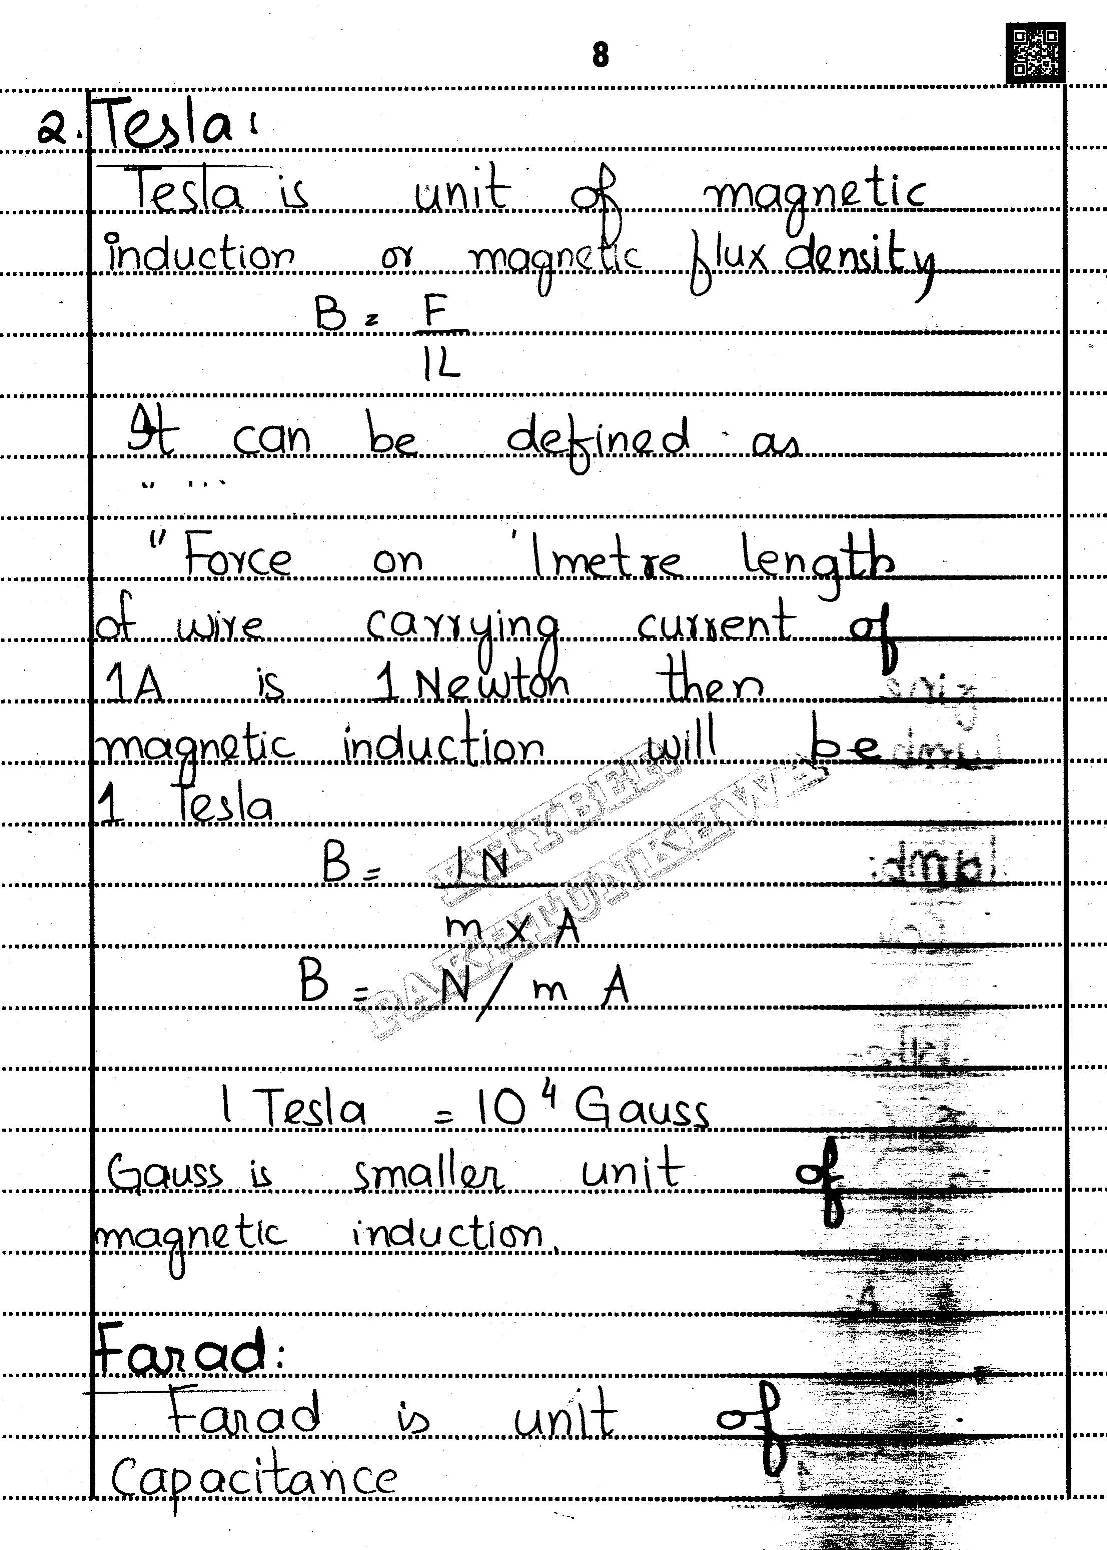 8
2. Tesla:
Tesla is unit of magnetic
induction or magnetic flux density
B = F
IL
It can be defined as
"Force on 1metre length
of wire carrying current of
1A is 1 Newton then
magnetic induction will be
1 Tesla
B = 1N
m x A
B = N/m A
KHYBER
PAKHTUNKHWA
1 Tesla = 10⁴ Gauss
Gauss is smaller unit of
magnetic induction.
Farad:
Farad is unit of
Capacitance